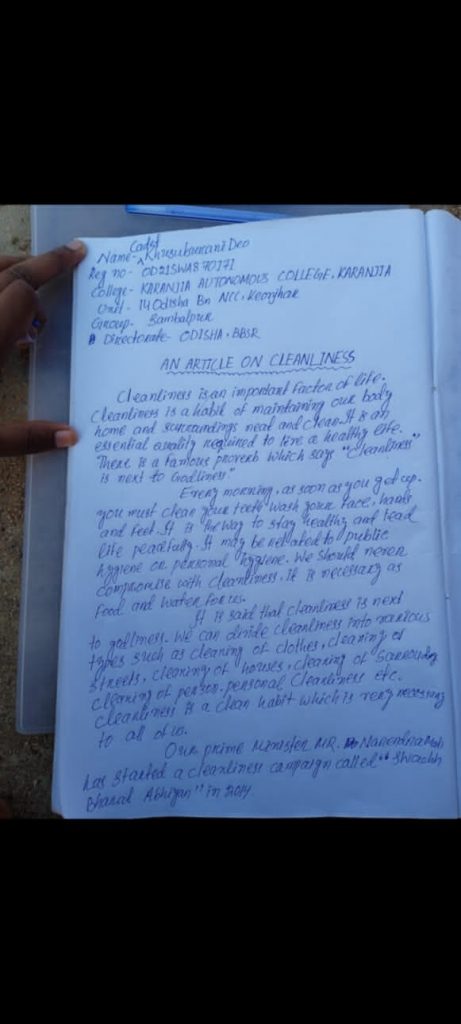 Cadet
Name- Khusubumani Deo
Reg no- OD21SWA870171
College- KARANJIA AUTONOMOUS COLLEGE, KARANJIA
Unit- 14 Odisha Bn NCC, Keonjhar
Group- Sambalpur
Directorate- ODISHA, BBSR
AN ARTICLE ON CLEANLINESS
Cleanliness is an important Factor of life.
Cleanliness is a habit of maintaining our body
home and surroundings neat and clean. It is an
essential quality required to live a healthy life.
There is a famous proverb which says "Cleanliness
is next to Godliness"
Every morning, as soon as you get up.
you must clean your teeth wash your face, hands
and feet. It is the way to stay healthy and lead
life peacefully. It may be related to public
hygiene or personal hygiene. We should never
compromise with cleanliness. it is necessary as
food and water for us.
It is said that cleanliness is next
to godliness. We can divide cleanliness into various
types such as cleaning of clothes, cleaning of
streets, cleaning of houses, cleaning of Surrounding
cleaning of person. personal Cleanliness etc.
Cleanliness is a clean habit which is very necessary
to all of us.
Our prime Minister MR. Narendra Modi
has started a cleanliness campaign called "Swachh
Bharat Abhiyan" in 2014.